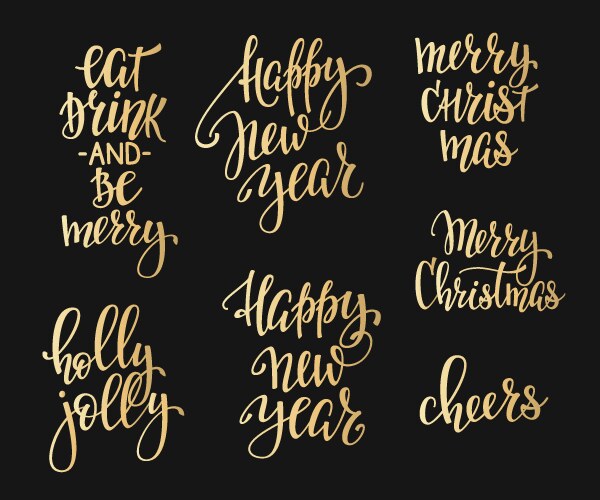 eat
Drink
-AND-
Be
merry
Happy
New
year
merry
CHRIST
mas
Merry
Christmas
holly
jolly
Happy
new
year
cheers